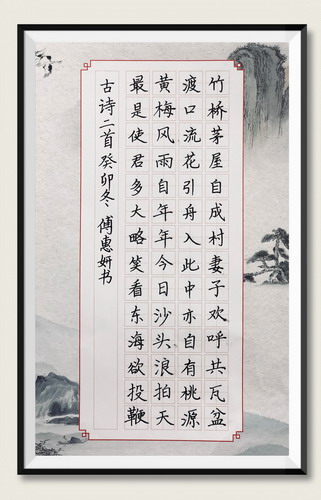 竹桥茅屋自成村妻子欢呼共瓦盆
渡口流花引舟入此中亦自有桃源
黄梅风雨自年年今日沙头浪拍天
最是使君多大略笑看东海欲投鞭
古诗二首癸卯冬 傅惠妍书